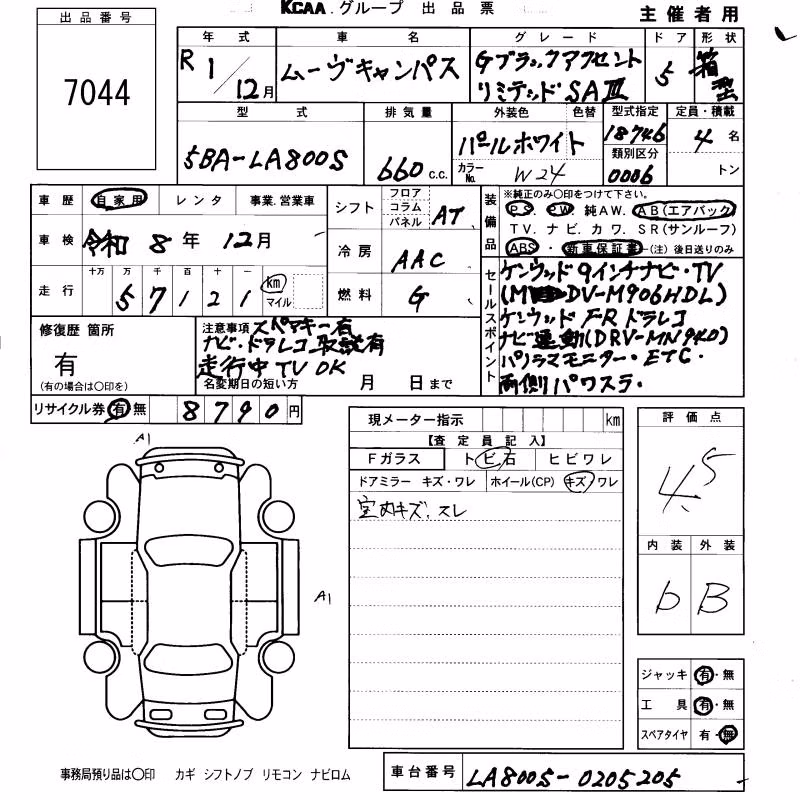 KCAA.グループ 出品票
主催者用
出品番号
7044
年式
R1/12月
車名
ムーヴキャンバス
グレード
Gブラックアクセント
リミテッド SAⅢ
ドア
5
形状
箱型
型式
5BA-LA800S
排気量
660 C.C.
外装色 色替
パールホワイト
カラーNo. W24
型式指定
18746
類別区分
0006
定員・積載
4名
トン
車歴 自家用 レンタ 事業.営業車
車検 令和8年12月
走行 十万 万 千 百 十 一
57121 km マイル
シフト フロア コラム パネル AT
冷房 AAC
燃料 G
装備品
※純正のみ〇印をつけて下さい。
PS. PW. 純AW. AB(エアバック)
TV. ナビ. カワ. SR(サンルーフ)
ABS・新車保証書―(注)後日送りのみ
セールスポイント
ケンウッド9インチナビ・TV
(MDV-M906HDL)
ケンウッド FRドラレコ
ナビ連動(DRV-MN940)
パノラマモニター・ETC・
両側パワスラ・
修復歴 箇所
有
(有の場合は〇印を)
注意事項 スペアキー有
ナビ・ドラレコ取説有
走行中TV OK
名変期日の短い方 月 日まで
リサイクル券 有 無 8790円
現メーター指示 km
【査定員記入】
Fガラス トビ石 ヒビワレ
ドアミラー キズ・ワレ ホイール(CP) キズ/ワレ
室内キズ、スレ
評価点
4.5
内装 外装
b B
A1
A1
ジャッキ 有・無
工具 有・無
スペアタイヤ 有・無
事務局預り品は〇印 カギ シフトノブ リモコン ナビロム
車台番号 LA800S-0205205